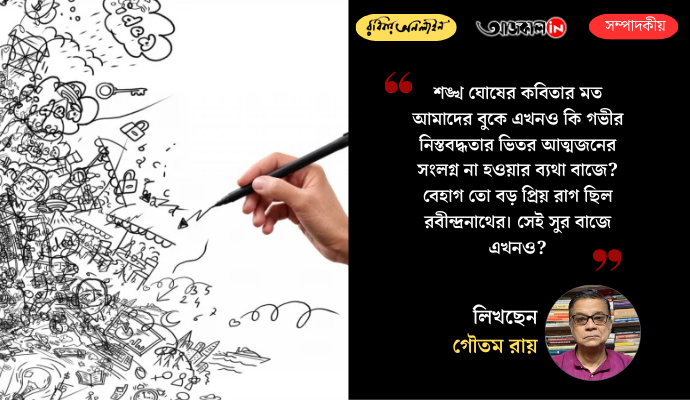 রবিবার অনলাইন
আজকাল IN
সম্পাদকীয়
শঙ্খ ঘোষের কবিতার মত
আমাদের বুকে এখনও কি গভীর
নিস্তবদ্ধতার ভিতর আত্মজনের
সংলগ্ন না হওয়ার ব্যথা বাজে?
বেহাগ তো বড় প্রিয় রাগ ছিল
রবীন্দ্রনাথের। সেই সুর বাজে
এখনও?
লিখছেন
গৌতম রায়